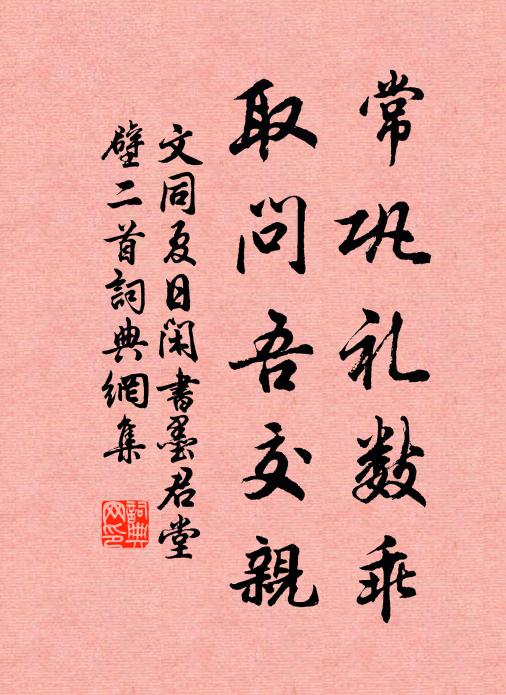 常巩礼数乖
取问吾交亲
文同夏日闲书墨君堂
壁二首词典网集
词典网印